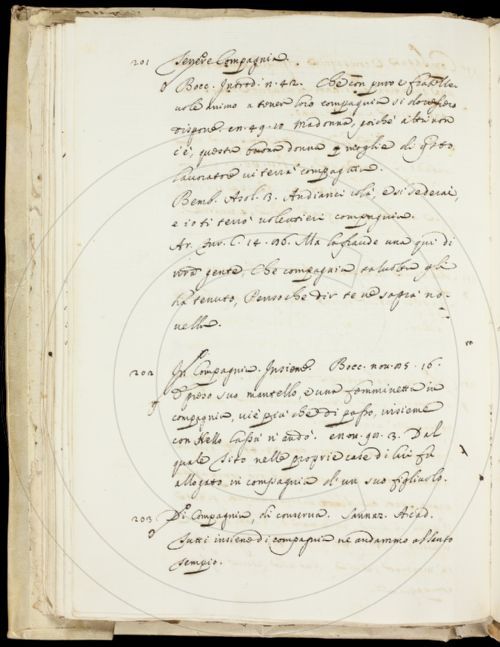 201 Tenere Compagnia.
Bocc. Introd. n. 42. Che con puro e fratelle-
vole animo a tener loro compagnia si dovessero
disporre. en. 49. 10 Madonna, poiché altri non
c'è, questa buona donna moglie di
lavoratore vi terrà compagnia.
Bemb. Asol. 3. Andianci colà, e si sederai,
e io ti terrò volentieri compagnia.
Ar. Fur. C. 14. 96. Ma laggiude una qui di
gente, Che compagnia talvolta gli
ha tenuto, Penso che dir te ne saprà no-
vella.
202 In Compagnia. Insieme. Bocc. nov. 85. 16.
E preso suo mantello, e una femminetta in
compagnia, vie più che di passo, insieme
con Nello lassù n'andò. e nov. 90. 3. Dal
quale sito nelle proprie case di lui fu
allogato in compagnia d'un suo figliuolo.
203 Di Compagnia, di conserva. Sannaz. Arcad.
Tutti insieme di compagnia ne andammo al santo
tempio.